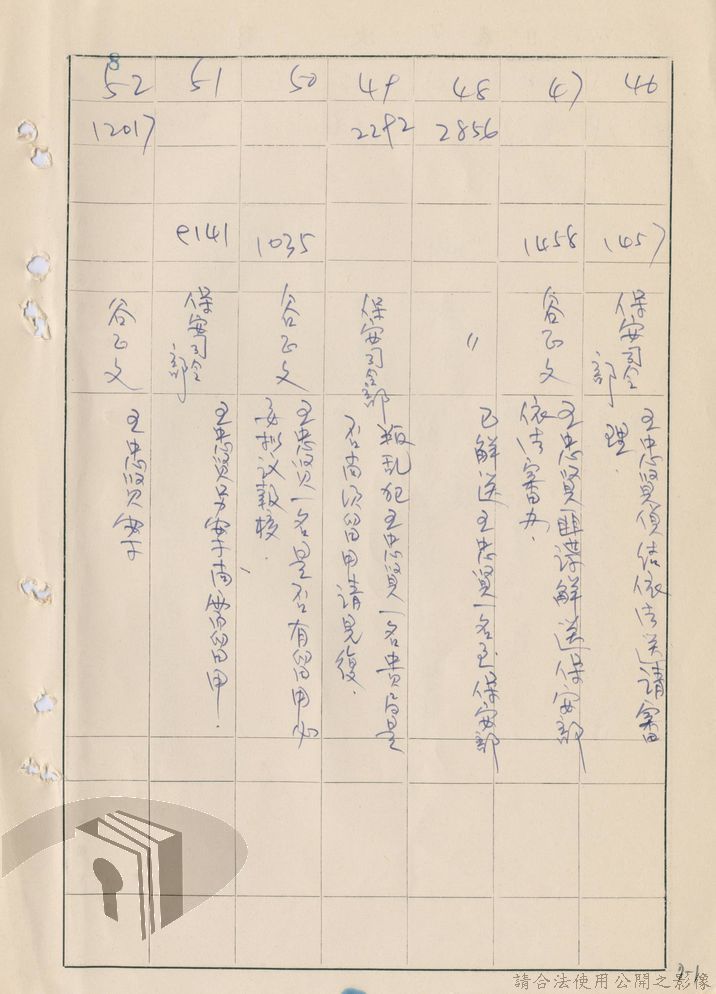 46
1457
保安司令部
王忠賢偵結依法送請審
理.
47
1458
谷正文
王忠賢匪諜解送保安部
依法審办.
48
2856
〃
已解送王忠賢一名至保安部
49
2292
保安司令部
叛乱犯王忠賢一名貴局是
否尚須留用請見復.
50
1035
谷正文
王忠賢一名是否有留用必
要拟议報核.
51
e141
保安司令部
王忠賢另案尚需留用.
52
12017
谷正文
王忠賢案
8
2-1
請合法使用公開之影像